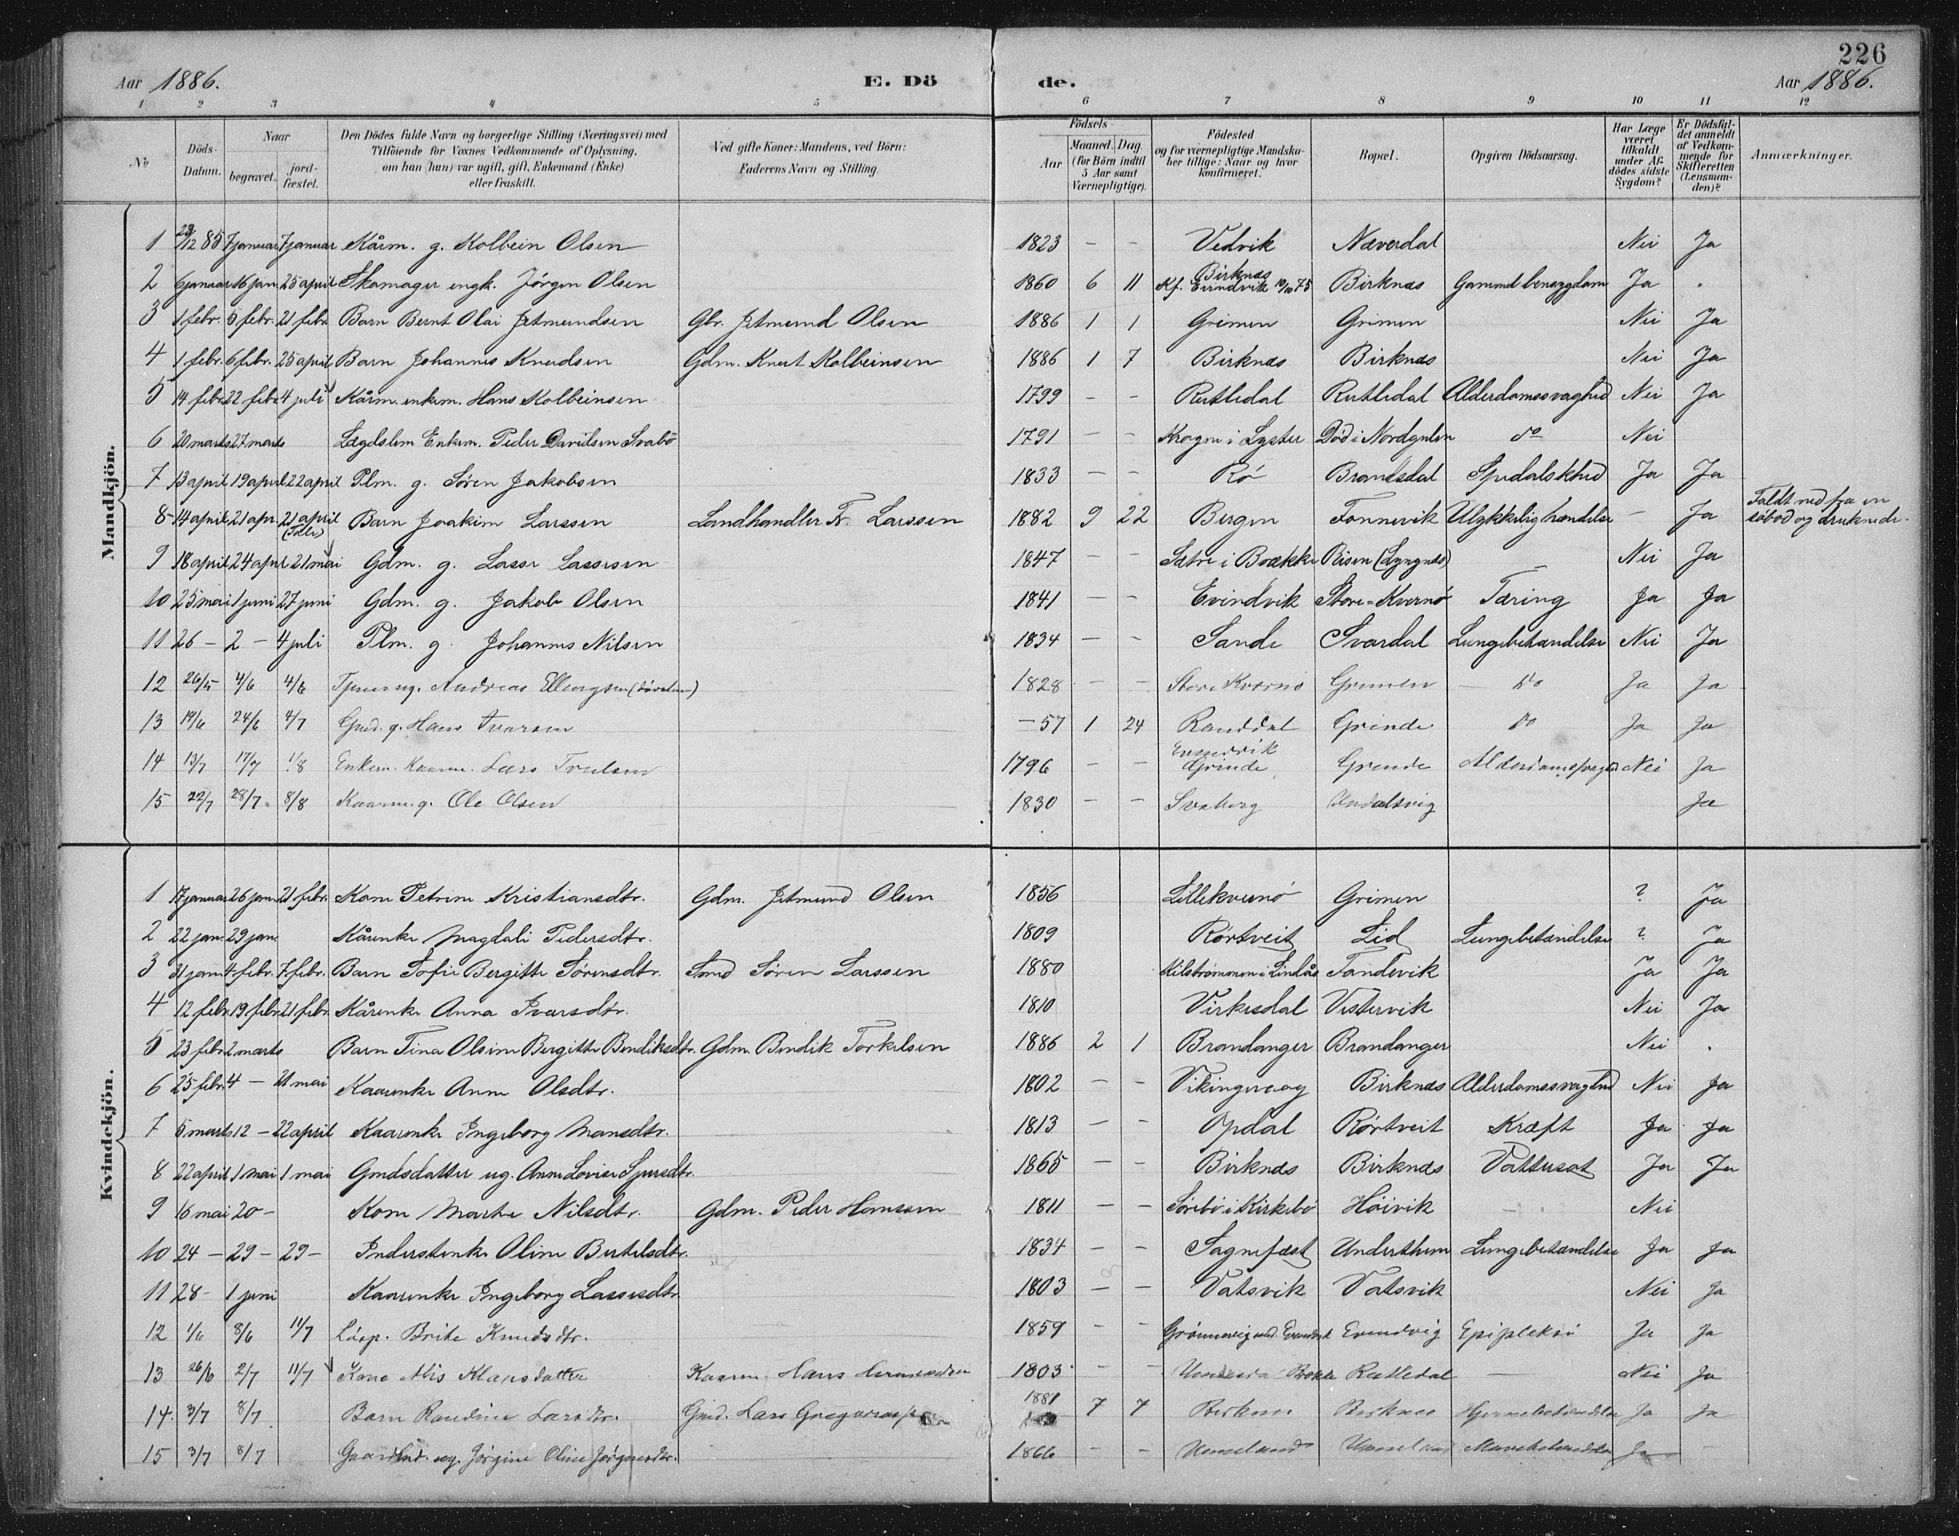 226
Aar 1886. E. Döde. Aar 1886.
1 2 3 4 5 6 7 8 9 10 11 12
No
Döds-Datum.
Naar begravet. jordfæstet.
Den Dödes fulde Navn og borgerlige Stilling (Næringsvei) med Tilföiende for Voxnes Vedkommende af Oplysning, om han (hun) var ugift, gift, Enkemand (Enke) eller fraskilt.
Ved gifte Koner: Mandens, ved Börn: Faderens Navn og Stilling.
Födsels- Aar Maaned. Dag (for Börn indtil 5 Aar samt Værnepligtige).
Födested og for værnepligtige Mandskaber tillige: Naar og hvor konfirmeret.
Bopæl.
Opgiven Dödsaarsag.
Har Læge været tilkaldt under Afdödes sidste Sygdom?
Er Dödsfaldet anmeldt af Vedkommende for Skifteretten (Lensmanden)?
Anmærkninger.
Mandkjön.
1 23/12 85 7 januar 7 januar Kårm. g. Kolbein Olsen 1823 - - Vedvik Næverdal Nei Ja
2 6 januar 16 jan. 25 april Skomager ungk. Jørgen Olsen 1860 6 11 Birknæs Kf. Eivindvik 10/10 75 Birknæs Gammel bensygdom Ja .
3 1 febr. 5 febr. 21 febr. Barn Bernt Olai Jetmundsen Gbr. Jetmund Olsen 1886 1 1 Grimen Grimen Nei Ja
4 1 febr. 6 febr. 25 april Barn Johannes Knudsen Gdm. Knut Kolbeinsen 1886 1 7 Birknæs Birknæs Nei Ja
5 14 febr. 22 febr. 4 juli Kårm. enkem. Hans Kolbeinsen 1799 - - Rutledal Rutledal Alderdomssvaghed Nei Ja
6 20 marts 27 marts Lægdslem Enkem. Peder Davidsen Svabö 1791 - - Krogen i Lyster Död i Nordgulen do Nei
7 13 april 19 april 22 april Plm. g. Sören Jakobsen 1833 - - Rö Brandsdal Spedalskhed Ja Ja
8 14 april 21 apr. 21 april Barn Joakim Larssen Landhandler Fr. Larssen 1882 9 22 Bergen Tonnevik Ulykkelig hændelse - Ja Faldt ned fra en söbod og druknede.
9 18 april 24 apr 21 mai Gdm. g. Lasse Lassesen 1847 - - Sætre i Brække Risen (Lyngnes) - Nei Ja
10 25 mai 1 juni 27 juni Gdm. g. Jakob Olsen 1841 - - Evindvik Store-Kvernö Tæring Ja Ja
11 26 - 2 - 4 juli Plm. g. Johannes Nilsen 1834 - - Sande Svardal Lungebetændelse Nei Ja
12 26/5 4/6 4/6 Andreas Ellingsen 1828 - - Store Kvernö Grimen do Ja Ja
13 19/6 24/6 4/7 Gmd. g. Hans Ivarsen - 57 1 24 Randdal Grinde do Ja Ja
14 13/7 17/7 1/8 Enkem. Kaarm. Lars Truelsen 1796 - - Evindvik Grinde Grinde Alderdomssvaghed Nei Ja
15 22/7 28/7 8/8 Kaarm. g. Ole Olsen 1830 - - Svaberg Undalsvig Ja
Kvindekjön.
1 17 januar 26 jan. 21 febr. Kone Petrine Kristiansdtr. Gdm. Jetmund Olsen 1856 Lillekvernö Grimen ? Ja
2 22 jan. 29 jan. Kårenke Magdali Pedersdtr. 1809 Rörtveit Lid Lungebetændelse ? Ja
3 31 jan. 4 febr. 7 febr. Barn Sofie Bergitte Sörensdtr. Smd Sören Larssen 1880 Kilströmmen i Lindås Tandevik Ja Ja
4 12 febr. 19 febr. 21 febr. Kårenke Anna Ivarsdtr. 1810 Virkesdal Vestervik Nei Ja
5 23 febr. 2 marts Barn Tina Olsine Bergitte Bendiksdtr. Gdm. Bendik Torkilsen 1886 2 1 Brandanger Brandanger Nei .
6 25 febr. 4 - 21 mai Kaarenke Anne Olsdtr. 1802 - - Vikingevaag Birknæs Alderdomssvaghed Nei Ja
7 5 marts 12 - 22 april Kaarenke Ingeborg Monsdtr. 1813 - - Opdal Rörtveit Kræft Ja Ja
8 22 april 1 mai 1 mai Gmdsdatter ug. Anne Lovise Sjursdtr. 1865 - - Birknæs Birknæs Vattersot Ja Ja
9 16 mai 20 - Kone Marthe Nilsdtr. Gdm. Peder Hanssen 1811 - - Sörebö i Kirkebö Höivik - Nei
10 24 - 29 - 29 - Inderstenke Oline Bertelsdtr. 1834 - - Sognefæst Underthun Lungebetændelse Ja Ja
11 28 - 1 juni Kaarenke Ingeborg Lassesdtr. 1803 - - Vatsvik Vatsvik Nei Ja
12 1/6 8/6 11/7 Brite Knudsdtr. 1859 Evindvig Epipleksi Ja Ja
13 26/6 2/7 11/7 Kone Hansdatter Kaarm. Hans 1803 - - Rutledal - Nei Ja
14. 3/7 8/7 Barn Randine Larsdtr. Gmd. Lars 1881 7 7 Birknes Birknes Hjernebetændelse Ja Ja
15 3/7 8/7 ug. Jørgine Oline Jørgensdtr. 1866 - - Unneland Unneland Ja -